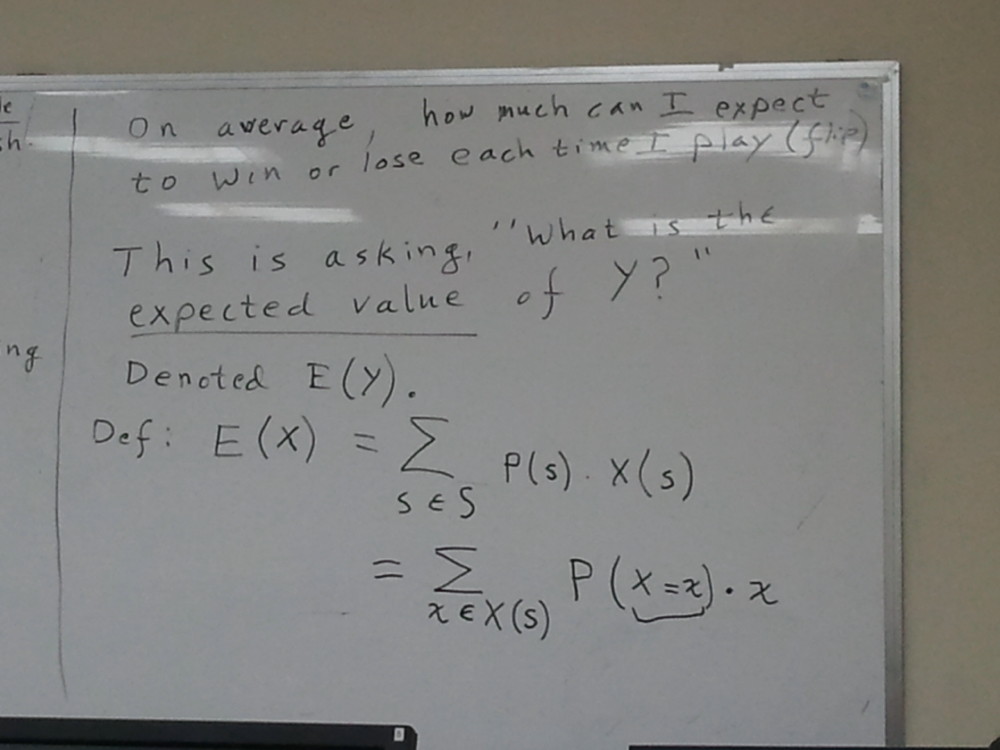 On average, how much can I expect
to win or lose each time I play (flip)
This is asking, "What is the
expected value of Y?"
Denoted E(Y).
Def: E(X) = ∑ P(s) · X(s)
s ∈ S
= ∑ P(X=x) · x
x ∈ X(S)
ng